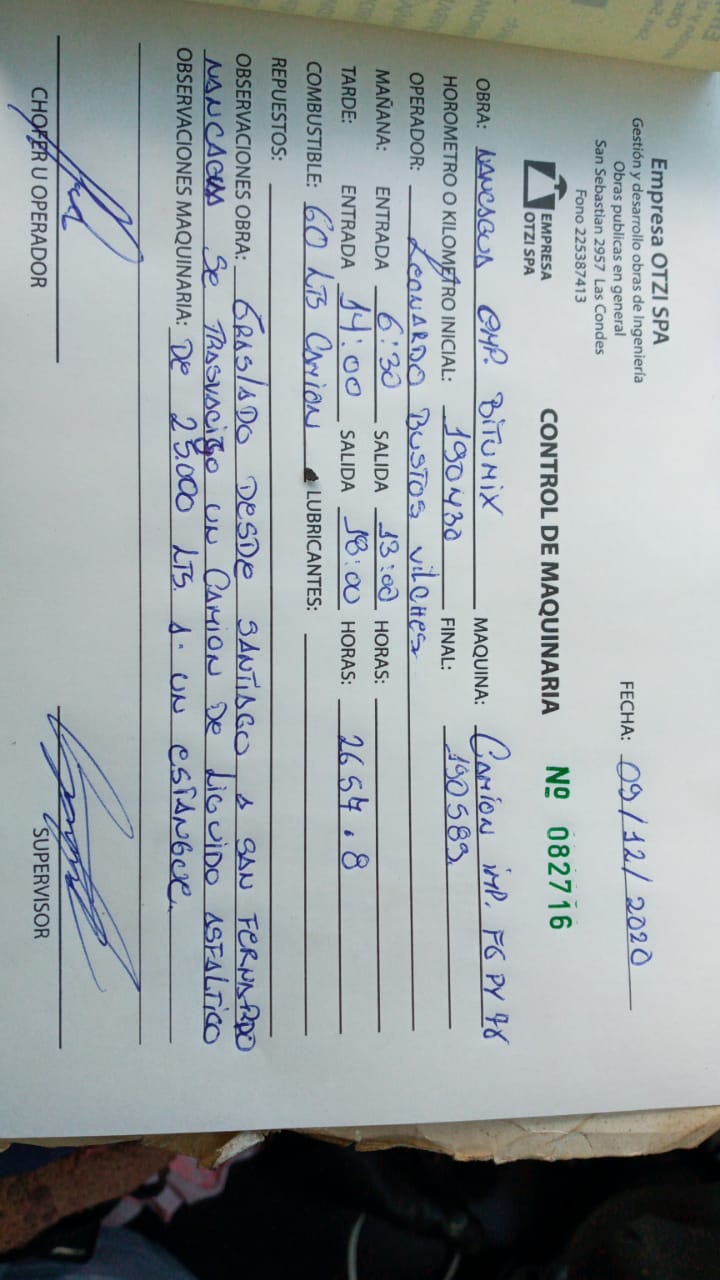 Empresa OTZI SPA
Gestión y desarrollo obras de Ingeniería
Obras publicas en general
San Sebastian 2957 Las Condes
Fono 225387413
EMPRESA
OTZI SPA
FECHA: 09/12/2020
CONTROL DE MAQUINARIA Nº 082716
OBRA: NANCAGUA EMP. BITUMIX MAQUINA: CAMION IMP. FG PY 78
HOROMETRO O KILOMETRO INICIAL: 190430 FINAL: 190589
OPERADOR: LEONARDO BUSTOS VILCHES
MAÑANA: ENTRADA 6:30 SALIDA 13:00 HORAS:
TARDE: ENTRADA 14:00 SALIDA 18:00 HORAS: 2657.8
COMBUSTIBLE: 60 LTS CAMION LUBRICANTES:
REPUESTOS:
OBSERVACIONES OBRA: TRASLADO DESDE SANTIAGO A SAN FERNARDO
NANCAGUA SE TRASVACIJO UN CAMION DE LIQUIDO ASFALTICO
OBSERVACIONES MAQUINARIA: DE 25.000 LTS. A. UN ESTANQUE.
CHOFER U OPERADOR SUPERVISOR